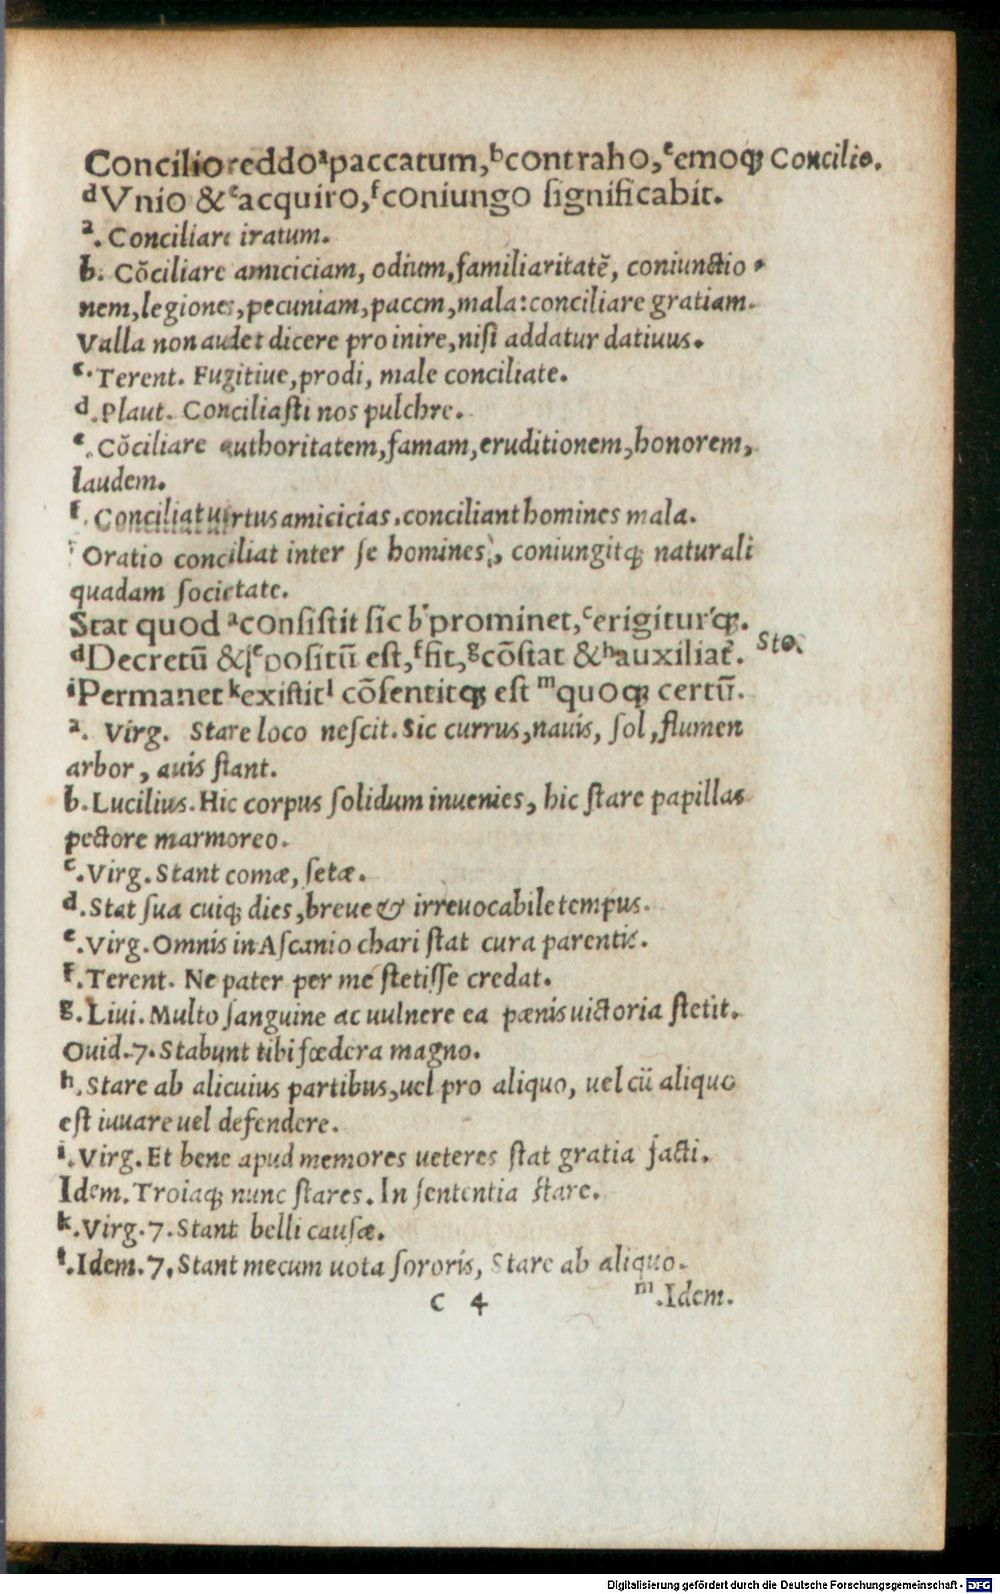 Concilio reddo ᵃpaccatum, ᵇcontraho, ᶜemoq; Concilio.
ᵈVnio & ᵉacquiro, ᶠconiungo significabit.
ᵃ. Conciliare iratum.
b. Cōciliare amiciciam, odium, familiaritatē, coniunctio-
nem, legiones, pecuniam, pacem, mala: conciliare gratiam.
Valla non audet dicere pro inire, nisi addatur datiuus.
ᶜ. Terent. Fugitiue, prodi, male conciliate.
d. Plaut. Conciliasti nos pulchre.
ᵉ. Cōciliare authoritatem, famam, eruditionem, honorem,
laudem.
ᶠ. Conciliat uirtus amicicias. conciliant homines mala.
Oratio conciliat inter se homines, coniungitq; naturali
quadam societate.
Stat quod ᵃconsistit sic b prominet, ᶜerigiturq;.
ᵈDecretū & ᵉpositū est, ᶠfit, ᵍcōstat & ʰauxiliat. Sto.
ⁱPermanet ᵏexistit ˡ cōsentitq; est ᵐquoq; certū.
ᵃ. Virg. Stare loco nescit. Sic currus, nauis, sol, flumen
arbor, auis stant.
b. Lucilius. Hic corpus solidum inuenies, hic stare papillas
pectore marmoreo.
ᶜ. Virg. Stant comæ, setæ.
d. Stat sua cuiq; dies, breue & irreuocabile tempus.
ᵉ. Virg. Omnis in Ascanio chari stat cura parentis.
ᶠ. Terent. Ne pater per me stetisse credat.
g. Liui. Multo sanguine ac uulnere ea pœnis uictoria stetit.
Ouid. 7. Stabunt tibi fœdera magno.
ʰ. Stare ab alicuius partibus, uel pro aliquo, uel cū aliquo
est iuuare uel defendere.
ⁱ. Virg. Et bene apud memores ueteres stat gratia facti.
Idem. Troiaq; nunc stares. In sententia stare.
k. Virg. 7. Stant belli causæ.
ˡ. Idem. 7. Stant mecum uota sororis, Stare ab aliquo.
c 4 ᵐ. Idem.
Digitalisierung gefördert durch die Deutsche Forschungsgemeinschaft - DFG